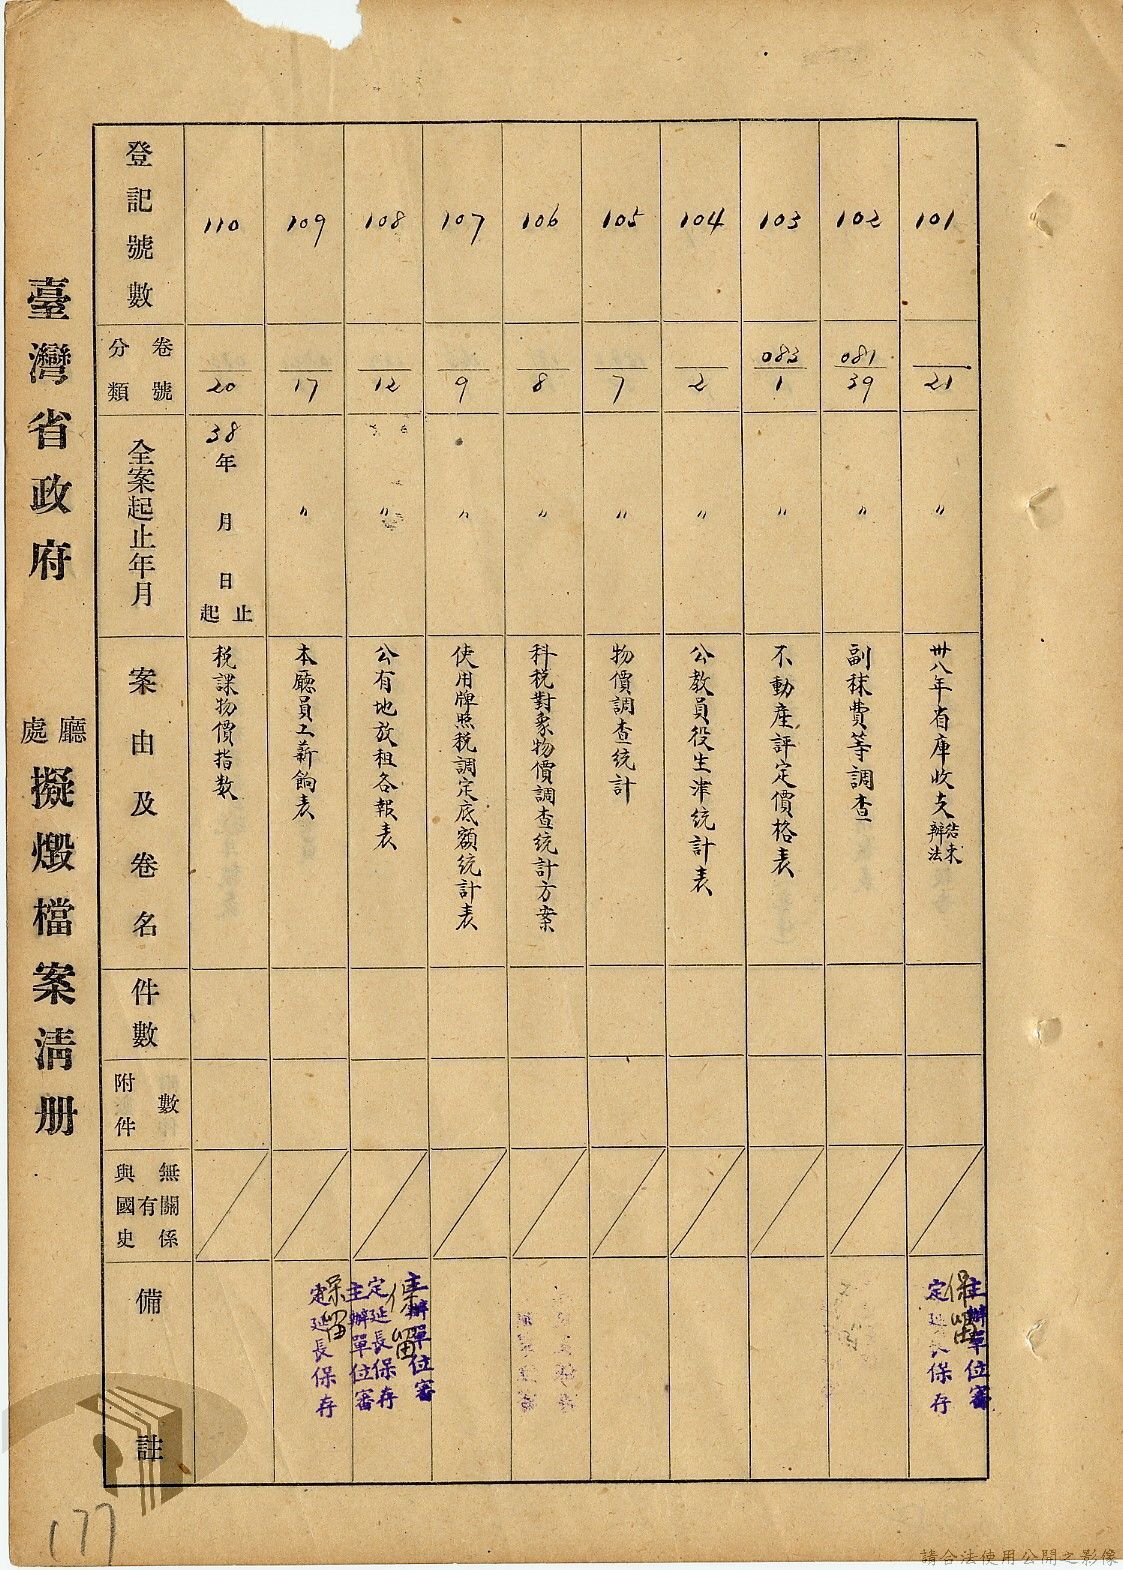 臺灣省政府 廳處擬燬檔案清册
登記號數
分類 卷號
全案起止年月
案由及卷名
件數
附件 數
與國史 有無關係
備註
101
21
〃
卅八年省庫收支結束辦法
保留
主辦單位審定延長保存
102
081
39
〃
副秣費等調查
103
083
1
〃
不動產評定價格表
104
2
〃
公教員役生津統計表
105
7
〃
物價調查統計
106
8
〃
科稅對象物價調查統計方案
107
9
〃
使用牌照稅調定底額統計表
108
12
〃
公有地放租各報表
保留
主辦單位審定延長保存
109
17
〃
本廳員工薪餉表
保留
主辦單位審定延長保存
110
20
38年 月 日起止
稅課物價指数
177
請合法使用公開之影像